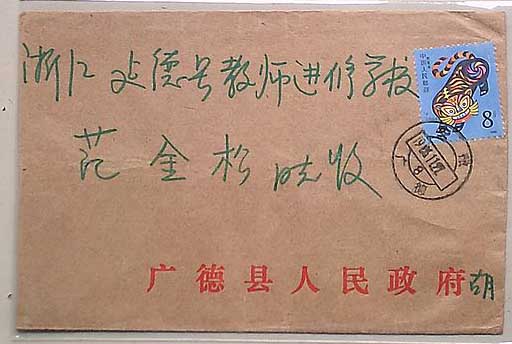 浙江建德县教师进修学校
范金松 收
广德县人民政府 胡
中国人民邮政
8分
广德